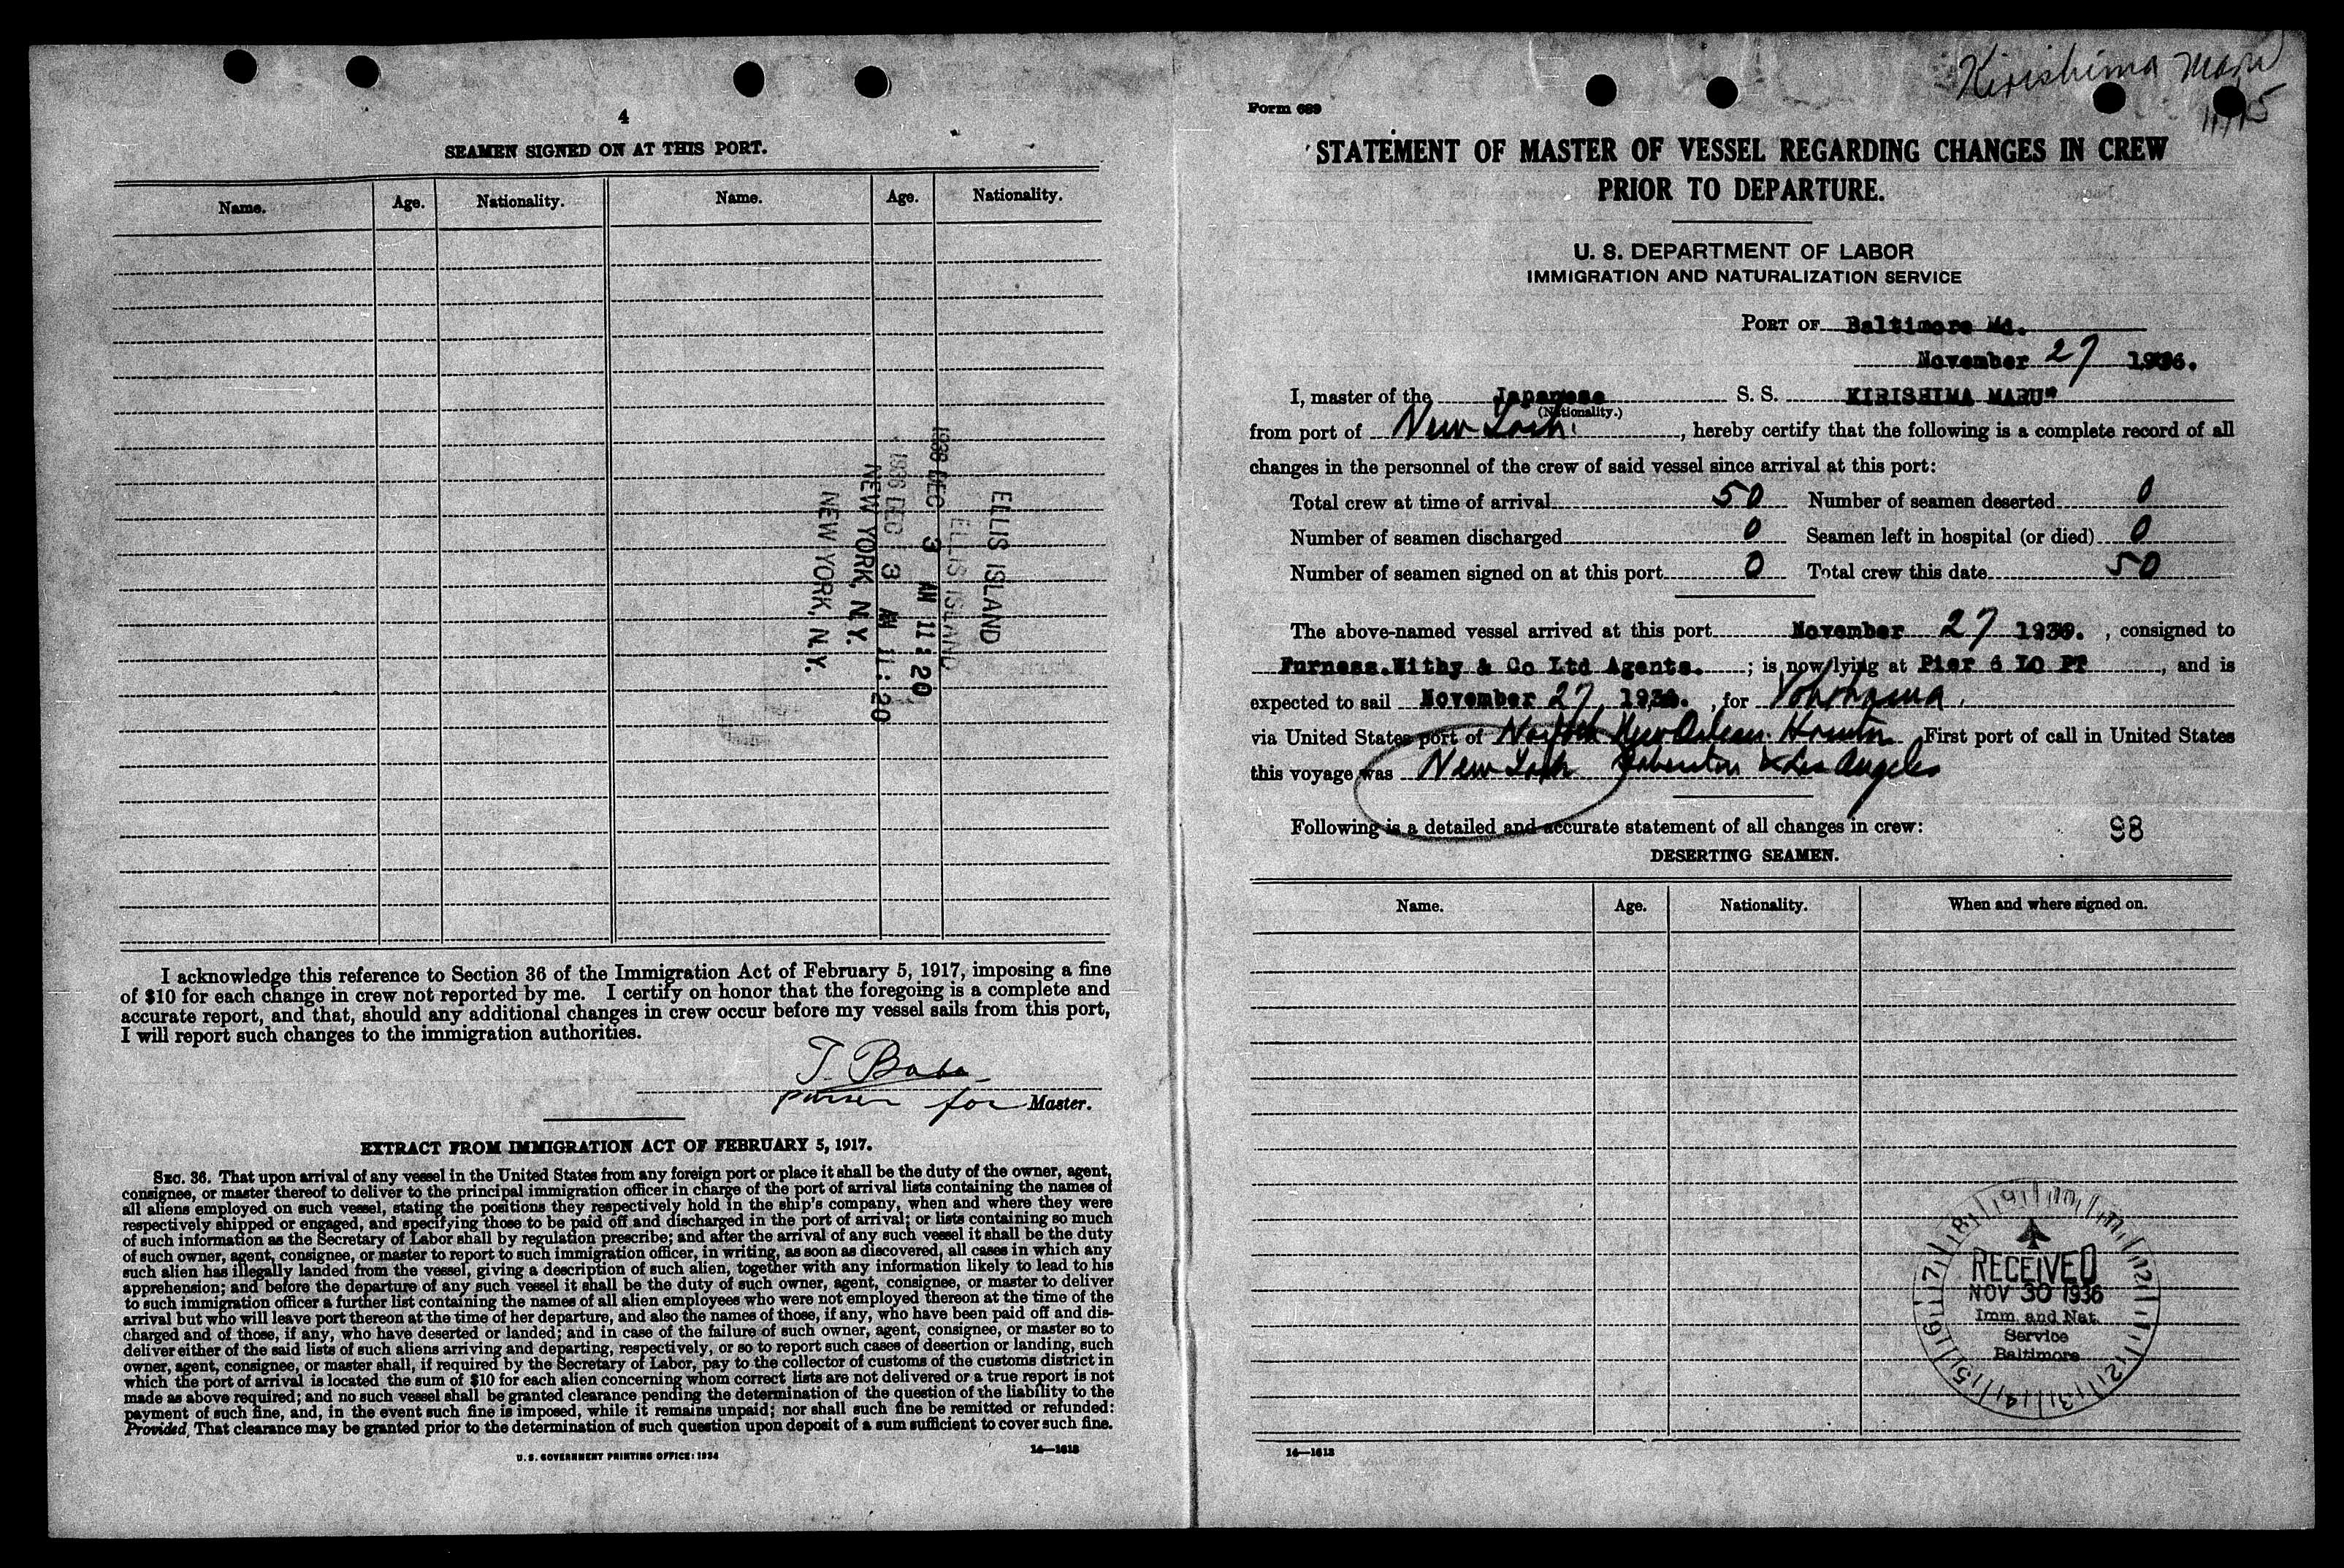 4
SEAMEN SIGNED ON AT THIS PORT.
Name. Age. Nationality. Name. Age. Nationality.
ELLIS ISLAND
ELLIS ISLAND
1936 DEC 3 AM 11:20
1936 DEC 3 AM 11:20
NEW YORK, N.Y.
NEW YORK, N.Y.
I acknowledge this reference to Section 36 of the Immigration Act of February 5, 1917, imposing a fine
of $10 for each change in crew not reported by me. I certify on honor that the foregoing is a complete and
accurate report, and that, should any additional changes in crew occur before my vessel sails from this port,
I will report such changes to the immigration authorities.
T. Baba
purser for Master.
EXTRACT FROM IMMIGRATION ACT OF FEBRUARY 5, 1917.
SEC. 36. That upon arrival of any vessel in the United States from any foreign port or place it shall be the duty of the owner, agent,
consignee, or master thereof to deliver to the principal immigration officer in charge of the port of arrival lists containing the names of
all aliens employed on such vessel, stating the positions they respectively hold in the ship's company, when and where they were
respectively shipped or engaged, and specifying those to be paid off and discharged in the port of arrival; or lists containing so much
of such information as the Secretary of Labor shall by regulation prescribe; and after the arrival of any such vessel it shall be the duty
of such owner, agent, consignee, or master to report to such immigration officer, in writing, as soon as discovered, all cases in which any
such alien has illegally landed from the vessel, giving a description of such alien, together with any information likely to lead to his
apprehension; and before the departure of any such vessel it shall be the duty of such owner, agent, consignee, or master to deliver
to such immigration officer a further list containing the names of all alien employees who were not employed thereon at the time of the
arrival but who will leave port thereon at the time of her departure, and also the names of those, if any, who have been paid off and dis-
charged and of those, if any, who have deserted or landed; and in case of the failure of such owner, agent, consignee, or master so to
deliver either of the said lists of such aliens arriving and departing, respectively, or so to report such cases of desertion or landing, such
owner, agent, consignee, or master shall, if required by the Secretary of Labor, pay to the collector of customs of the customs district in
which the port of arrival is located the sum of $10 for each alien concerning whom correct lists are not delivered or a true report is not
made as above required; and no such vessel shall be granted clearance pending the determination of the question of the liability to the
payment of such fine, and, in the event such fine is imposed, while it remains unpaid; nor shall such fine be remitted or refunded:
Provided, That clearance may be granted prior to the determination of such question upon deposit of a sum sufficient to cover such fine.
U.S. GOVERNMENT PRINTING OFFICE: 1934 14—1613
Kirishima Maru
11/15
Form 689
STATEMENT OF MASTER OF VESSEL REGARDING CHANGES IN CREW
PRIOR TO DEPARTURE.
U. S. DEPARTMENT OF LABOR
IMMIGRATION AND NATURALIZATION SERVICE
PORT OF Baltimore Md.
November 27 1936.
I, master of the Japanese S. S. KIRISHIMA MARU"
(Nationality.)
from port of New York, hereby certify that the following is a complete record of all
changes in the personnel of the crew of said vessel since arrival at this port:
Total crew at time of arrival 50 Number of seamen deserted 0
Number of seamen discharged 0 Seamen left in hospital (or died) 0
Number of seamen signed on at this port 0 Total crew this date 50
The above-named vessel arrived at this port November 27 1936. , consigned to
Furness.Withy & Co Ltd Agents. ; is now lying at Pier 6 LO PT , and is
expected to sail November 27, 1936. , for Yokohama,
via United States port of Norfolk New Orleans Houston First port of call in United States
this voyage was New York Galveston & Los Angeles
Following is a detailed and accurate statement of all changes in crew: 98
DESERTING SEAMEN.
Name. Age. Nationality. When and where signed on.
RECEIVED
NOV 30 1936
Imm. and Nat.
Service
Baltimore
14—1613